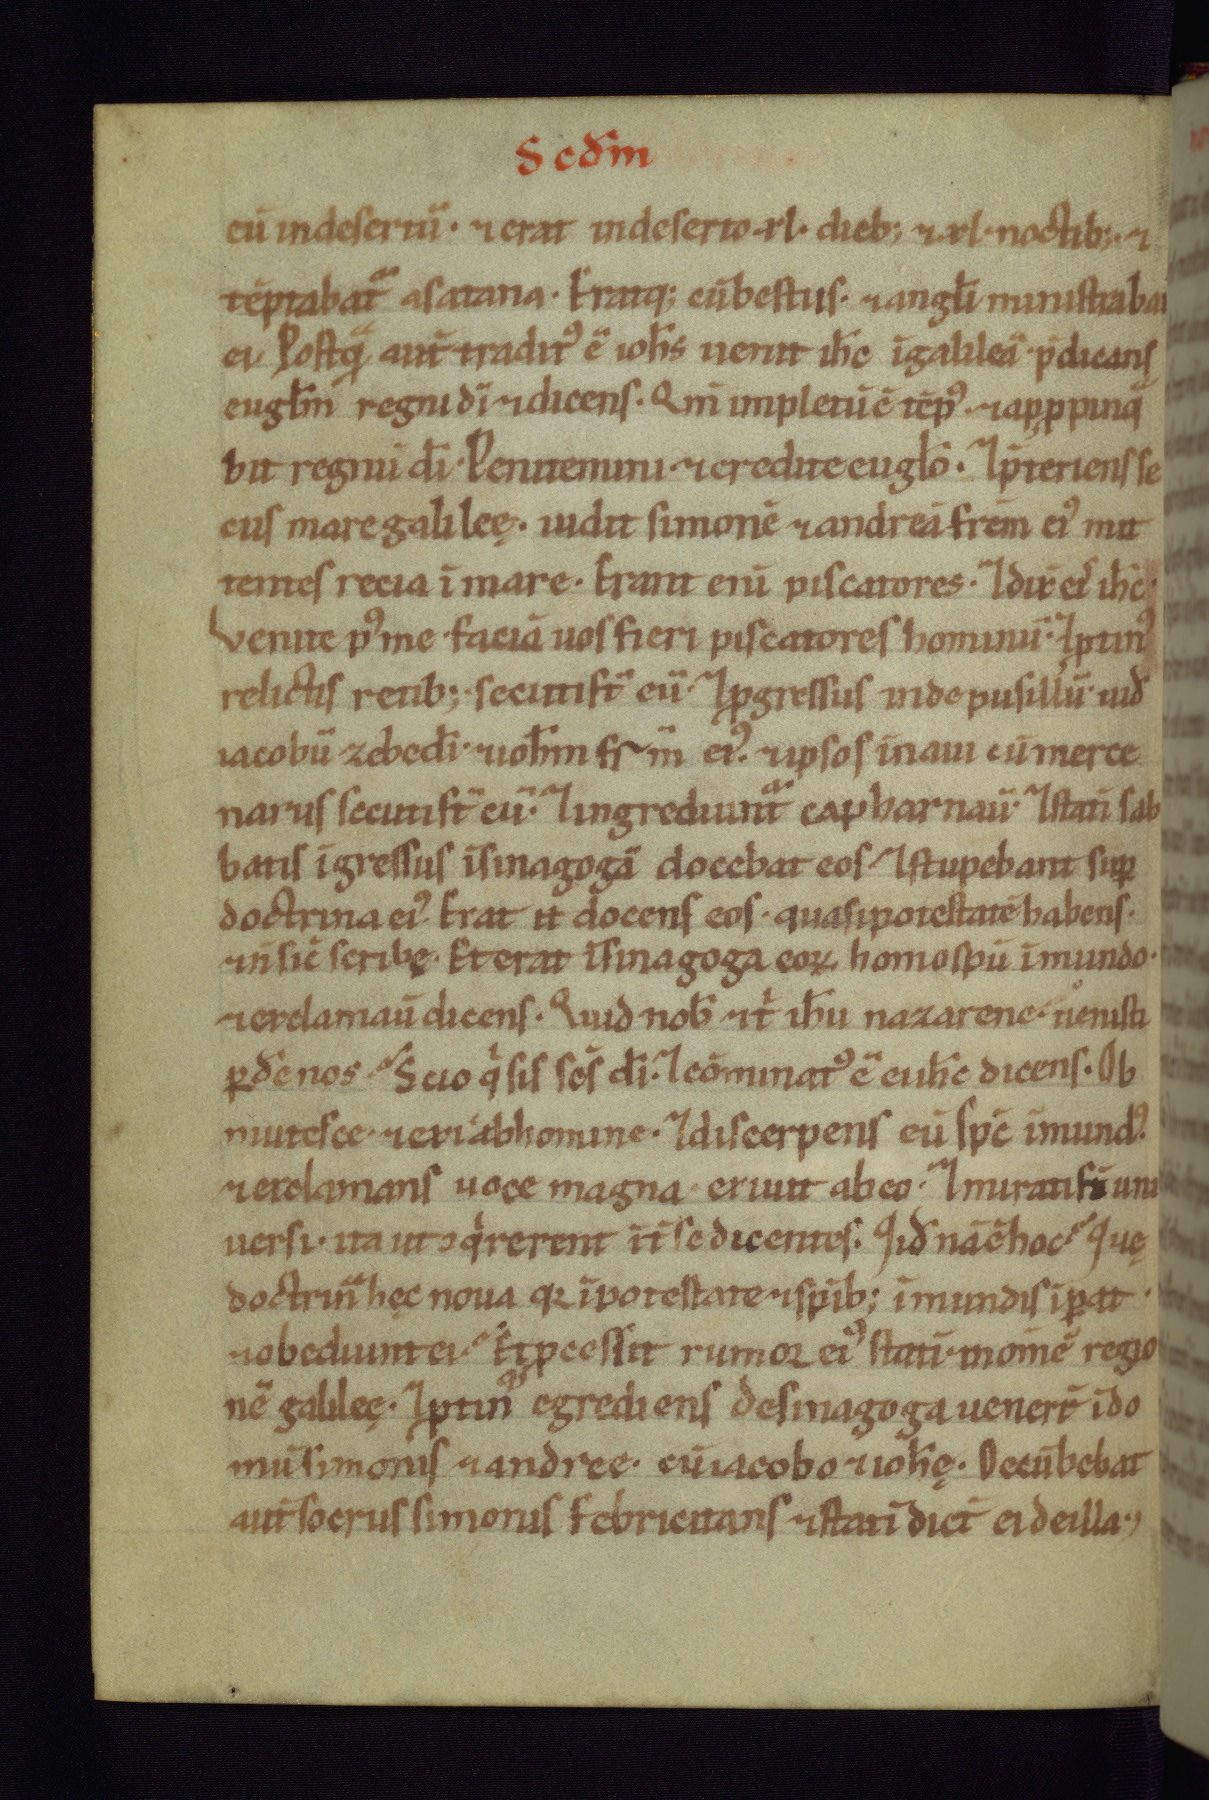 Scdm̄
eū indesertū· ⁊ erat indeserto·xl· dieb; ⁊·xl·noctib;·⁊
tēptabat᷑ asatana· Eratq; cūbestiis· ⁊angl̄i ministraba
ei· Postqͣ̄ aut̄ tradit᷒ ē ioh̄s uenit ih̄c īgalileā p̄dicans
eugl̄m regni dī ⁊dicens· Qm̄ impletū ē tēp᷒·⁊apꝓpinq
bit regnū dī· Penitemini·⁊credite eugl̄o· ⁊p̄teriens se
cus mare galileę· uidit simonē ⁊andreā frēm ei᷒ mit
tentes recia ī mare· Erant enī piscatores· ⁊dix̄ eis ih̄c·
Venite p᷒ me·faciā uos fieri piscatores hominū· ⁊ꝓtin᷒
relictis retib;·secuti st̄ eū· ⁊ꝓgressus inde pusillū· uid̄
iacobū zebedī·⁊ioh̄m fr̄m ei᷒· ⁊ipsos īnaui cū merce
nariis secuti st̄ eū· ⁊ingrediunt᷑ capharnaū· ⁊statī sab
batis īgressus īsinagogā docebat eos· ⁊stupebant suꝑ
doctrina ei᷒· Erat ū docens eos·quasipotestatē habens·
⁊n̄ sic̄ scribę· Et erat īsinagoga eoꝝ homo spū īmundo·
⁊exclamauī dicens· Quid nob̄ ⁊t̄ ih̄u nazarene· uenisti
ꝑd̄e nos· Scio qͥ sis sc̄s dī· ⁊cōminat᷒ ē ei ih̄c dicens· Ob
mutesce·⁊exi abhomine· ⁊discerpens eū sp̄c īmund᷒·
⁊exclamans uoce magna·exiuit abeo· ⁊mirati st̄ uni
uersi· ita ut ꝯqͥrerent īt̄ se dicentes· Qid̄ nā ē hoc· Quę
doctrinͣ hęc noua qꝛ īpotestate ⁊spīb; īmundis īꝑat·
⁊obediunt ei· Et ꝓcessit rumor ei᷒ statī·inom̄ē regio
nē galileę· ⁊ꝓtin᷒ egrediens desinagoga uener̄t īdo
mū simonis ⁊andree· cū iacobo ⁊ioh̄ę· Decūbebat
aut̄ socrus simonis febricitans ⁊statī dict̄ ei deilla·